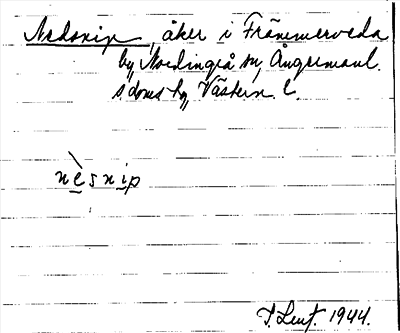 Nedsnip, åker i Främmerveda
by, Nordingrå sn, Ångermanl.
s. doms hg, Västern. l.
nèsnip
1944.